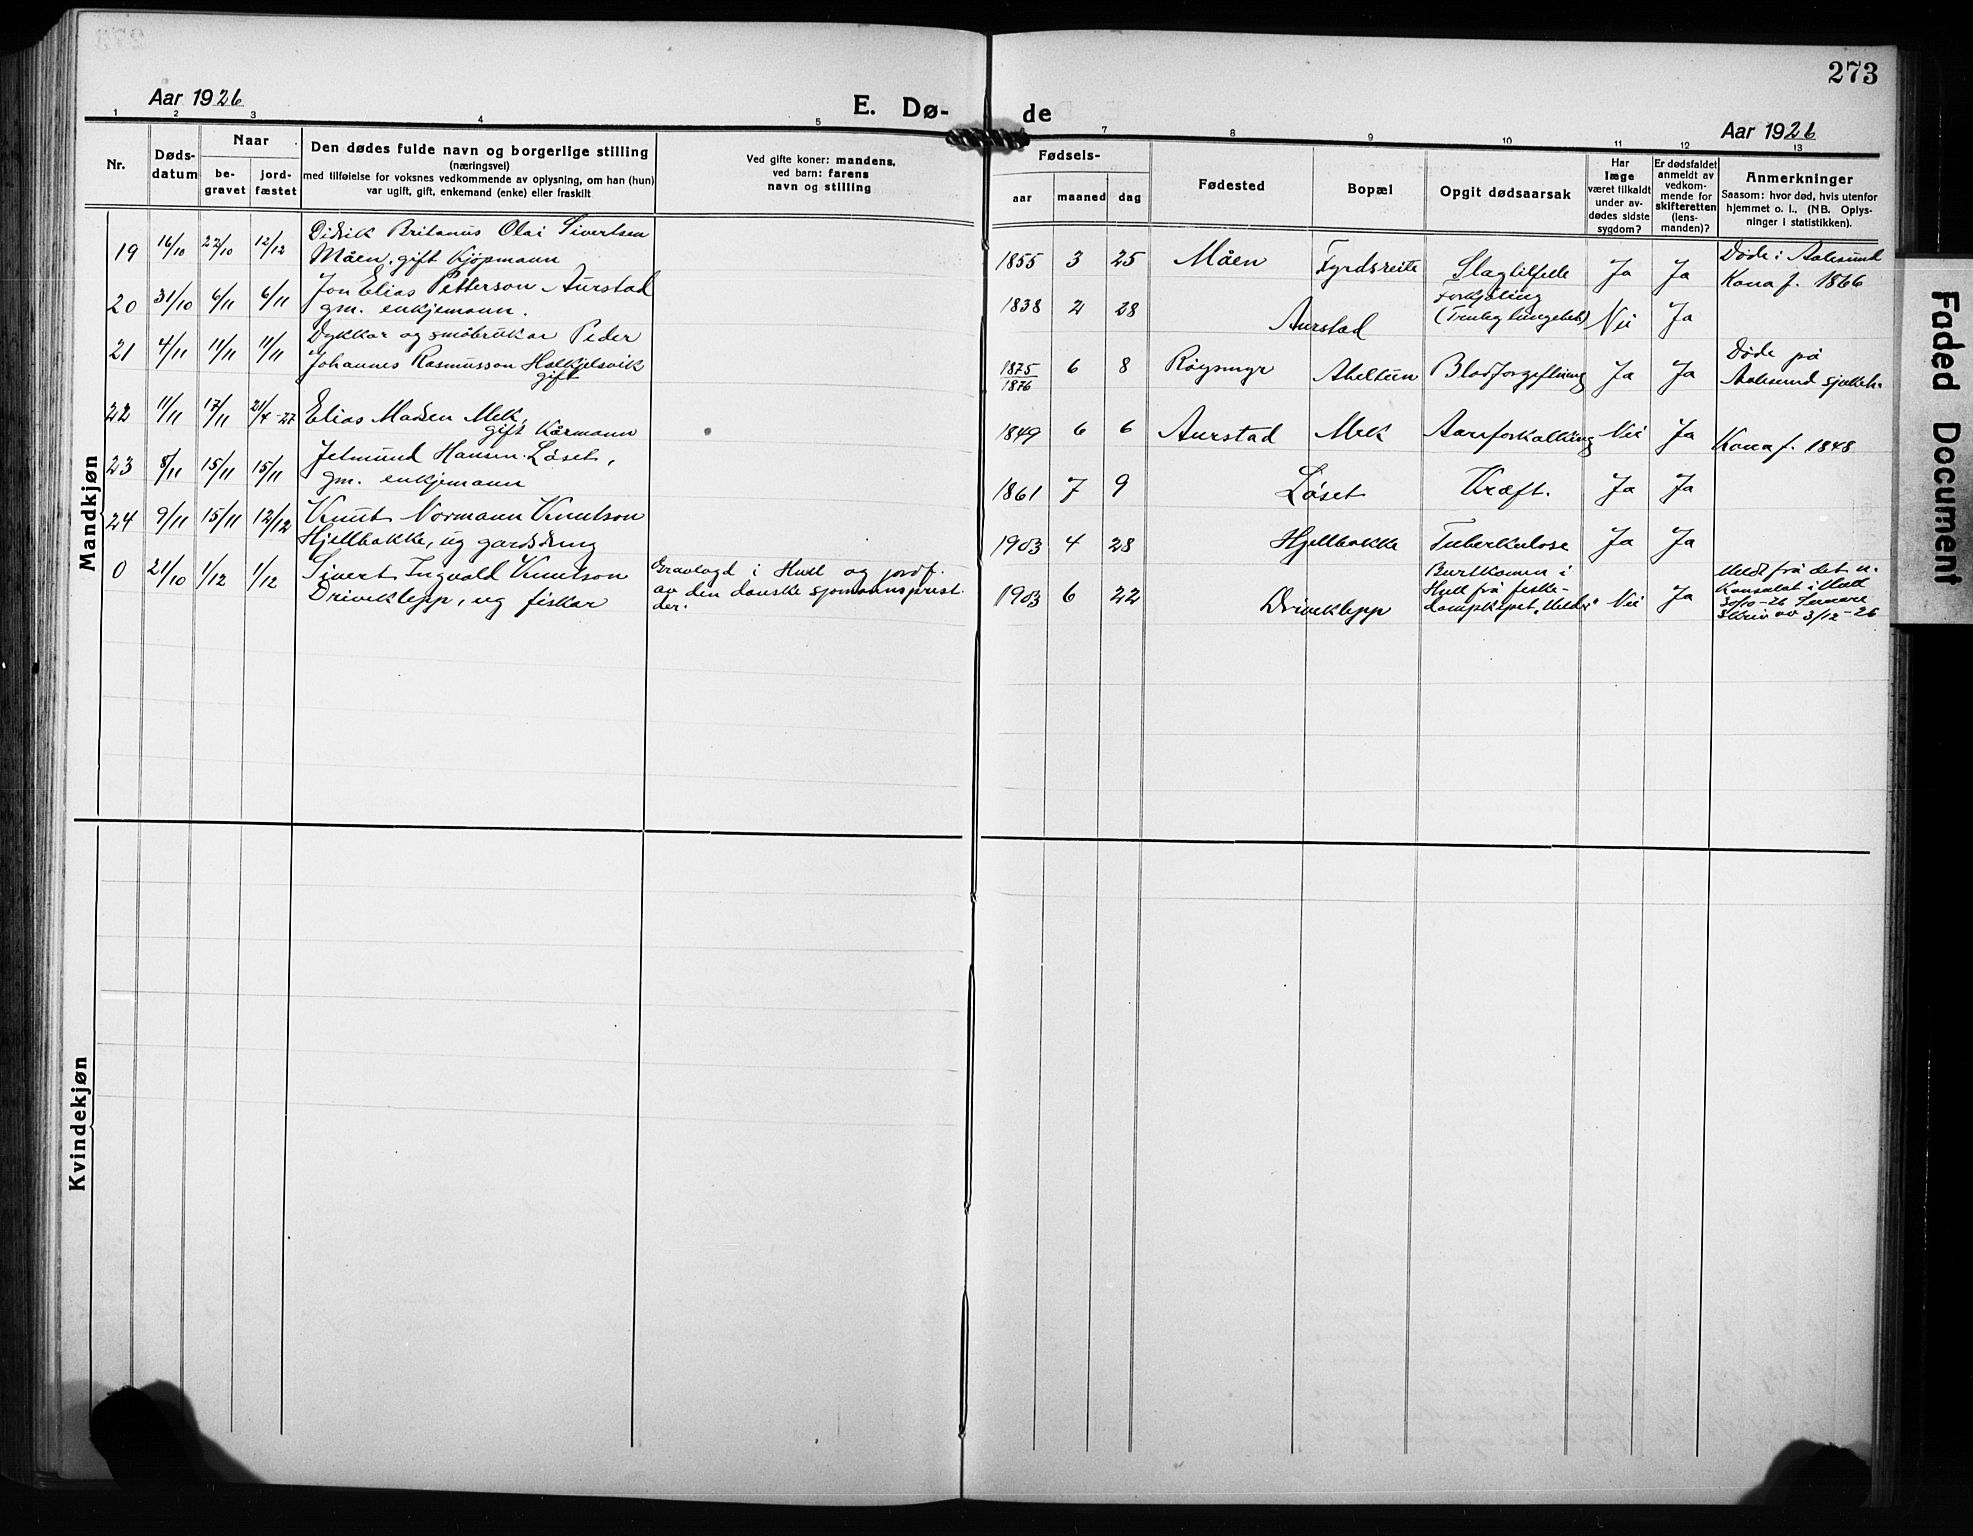 273
Aar 1926
E. Dø- de
Aar 1926
1 2 3 4 5 7 8 9 10 11 12 13
Nr.
Døds-
datum
Naar
be-
gravet
jord-
fæstet
Den dødes fulde navn og borgerlige stilling
(næringsvei)
med tilføielse for voksnes vedkommende av oplysning, om han (hun)
var ugift, gift, enkemand (enke) eller fraskilt
Ved gifte koner: mandens,
ved barn: farens
navn og stilling
Fødsels-
aar maaned dag
Fødested
Bopæl
Opgit dødsaarsak
Har
læge
været tilkaldt
under av-
dødes sidste
sygdom?
Er dødsfaldet
anmeldt av
vedkom-
mende for
skifteretten
(lens-
manden)?
Anmerkninger
Saasom: hvor død, hvis utenfor
hjemmet o. l., (NB. Oplys-
ninger i statistikken).
Mandkjøn
19 16/10 22/10 12/12 Didrik Britanus Olai Sivertsen
Måen, gift Kjøpmann
1855 3 25 Måen Fyrdsreite Slagtilfelle Ja Ja Døde i Aalesund
Kona f. 1866
20 31/10 6/11 6/11 Jon Elias Petterson Aurstad
gm. enkjemann.
1838 2 28 Aurstad Forkjøling
(Truleg lungebet.) Nei Ja
21 4/11 11/11 11/11 Dykkar og småbrukar Peder
Johannes Rasmusson Halkjelsvik
gift
1875
1876
6 8 Røysmyr Aheltun Blodforgiftning Ja Ja Døde på
Aalesund sjukeh.
22 11/11 17/11 21/4-27 Elias Madsen Mek,
gift Kårmann
1849 6 6 Aurstad Mek Aareforkalking Nei Ja Kona f. 1848
23 8/11 15/11 15/11 Jetmund Hansen Løset,
gm. enkjemann
1861 7 9 Løset Kræft. Ja Ja
24 9/11 15/11 12/12 Knut Normann Knutson
Hjellbakke, ug gardsdreng
1903 4 28 Hjellbakke Tuberkulose Ja Ja
0 21/10 1/12 1/12 Sivert Ingvald Knutson
Driveklepp, ug fiskar
Gravlagd i Hull og jordf.
av den danske sjømannsprest
der.
1903 6 22 Driveklepp Burtkomen i
Hull frå fiske-
dampskipet Nei Ja Meldt frå det n.
Konsulat i Hull
30/10-26
skriv av 3/12-26
Kvindekjøn
Faded Document